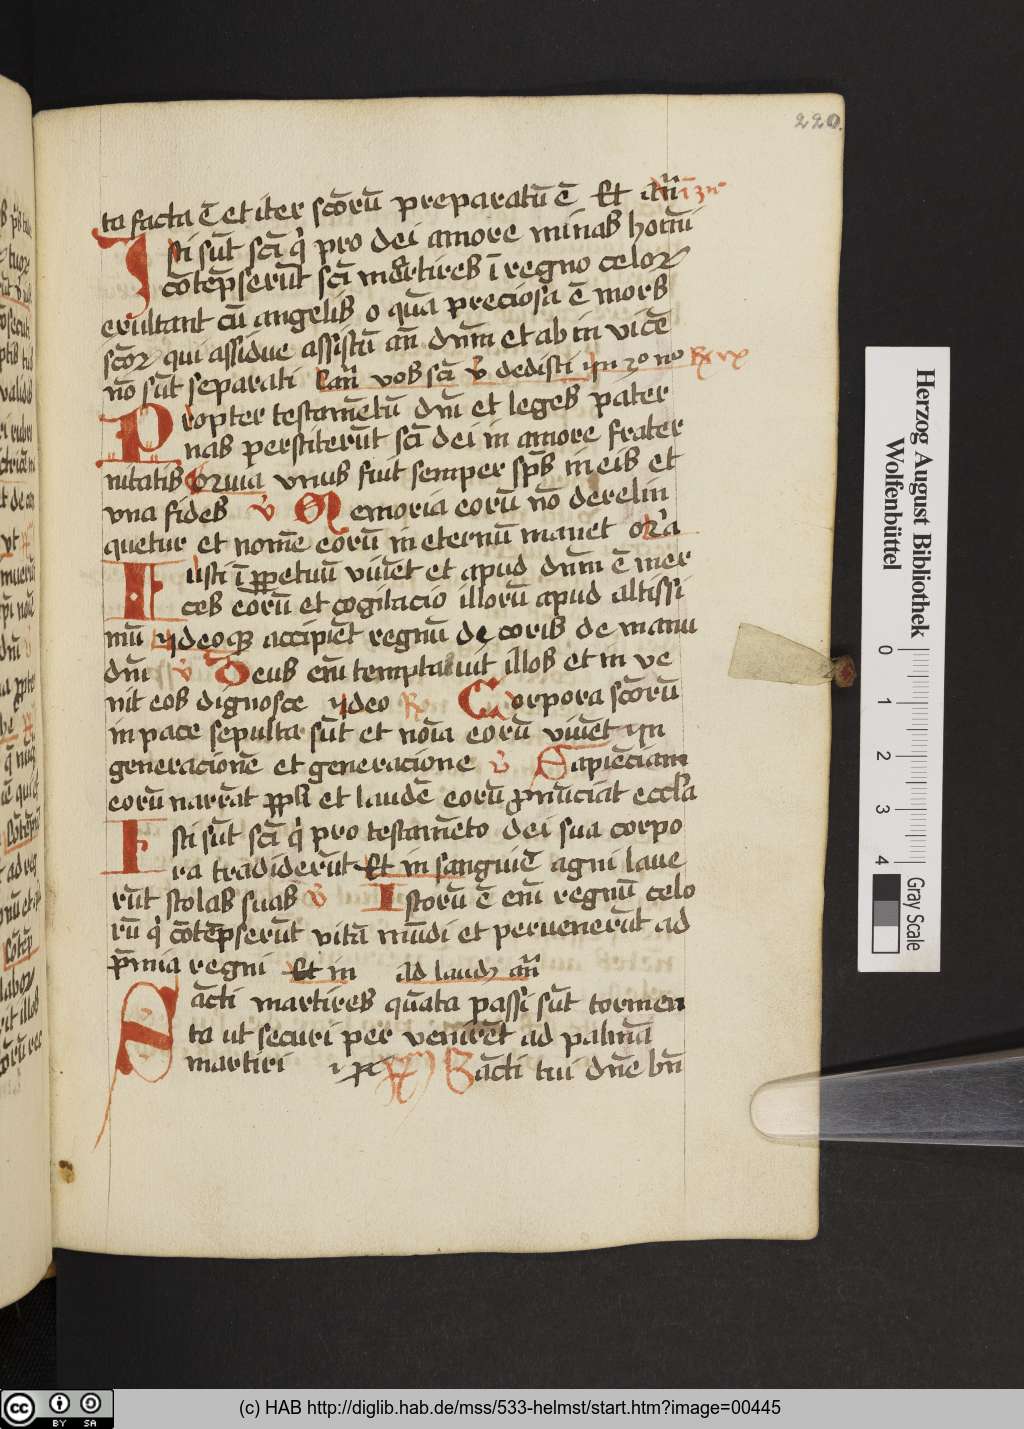 220.
ta facta ē et iter scōrū preparatū ē Et añ
Isti sūt sc̄i q̇ pro dei amore minas homī
cōtēpserūt sc̄i martires ī regno celoꝝ
exultant cū angelis o qūa preciosa ē mors
scōꝝ qui assidue assistūt an̄ dn̄m et ab in vicē
nō sūt separati Lau vob sc̄i v̇ dedisti
Propter testamētū dn̄i et leges pater
nas perstiterūt sc̄i dei in amore frater
nitatis Qruia vnus fuit semper sp̄s in eis et
vna fides v̇ Memoria eorū nō derelin
quetur et nomē eorū in eternū manet
Iusti ī ꝑpetuū viuēt et apud dn̄m ē mer
ces eorū et cogitacio illorū apud altissi
mū ydeoqꝫ accipiēt regnū decoris de manu
dn̄i v̇ Deus em̄ temptauit illos et in ve
nit eos dignos se ydeo Corpora scōrū
in pace sepulta sūt et nōia eorū viuēt yn
generacionē et generacione v̇ Sapiēciam
eorū narrāt ppl̄i et laudē eorū ꝓnūciāt eccl̄a
Isti sūt sc̄i q̇ pro testamēto dei sua corpo
ra tradiderūt Et in sanguīe agni laue
rūt stolas suas v̇ Istorū ē em̄ regnū celo
rū q̇ cōtēpserūt vitā mūdi et peruenerūt ad
p̄mia regni Et in ad laudꝫ an̄
Sācti martires quāta passi sūt tormen
ta ut securi per venirēt ad palmā
martiri Sācti tui dn̄e bn̄
Herzog August Bibliothek
Wolfenbüttel
0 1 2 3 4
Gray Scale
cc BY SA
(c) HAB http://diglib.hab.de/mss/533-helmst/start.htm?image=00445